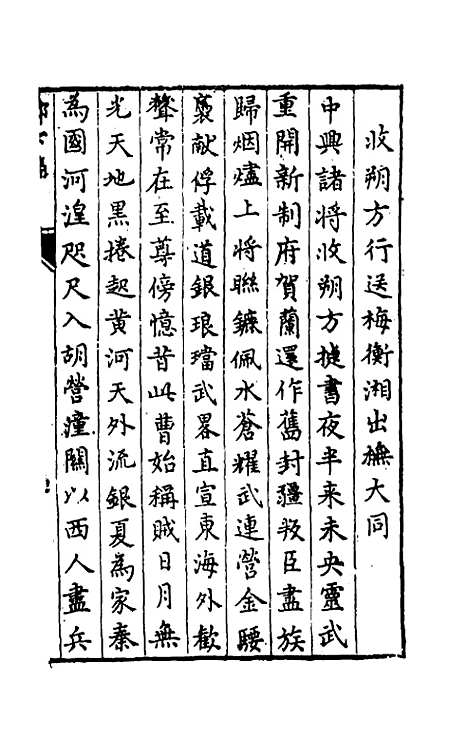 收朔方行送梅衡湘出撫大同
中興諸將收朔方捷書夜半来未央靈武
重開新制府賀蘭還作舊封疆叛臣盡族
歸烟燼上將聯鑣佩水蒼耀武連營金騕
褭献俘載道銀琅璫武畧直宣東海外歡
聲常在至尊傍憶昔此曹始稱賊日月無
光天地黑捲起黄河天外流銀夏為家秦
為國河湟咫尺入胡營潼關以西人盡兵